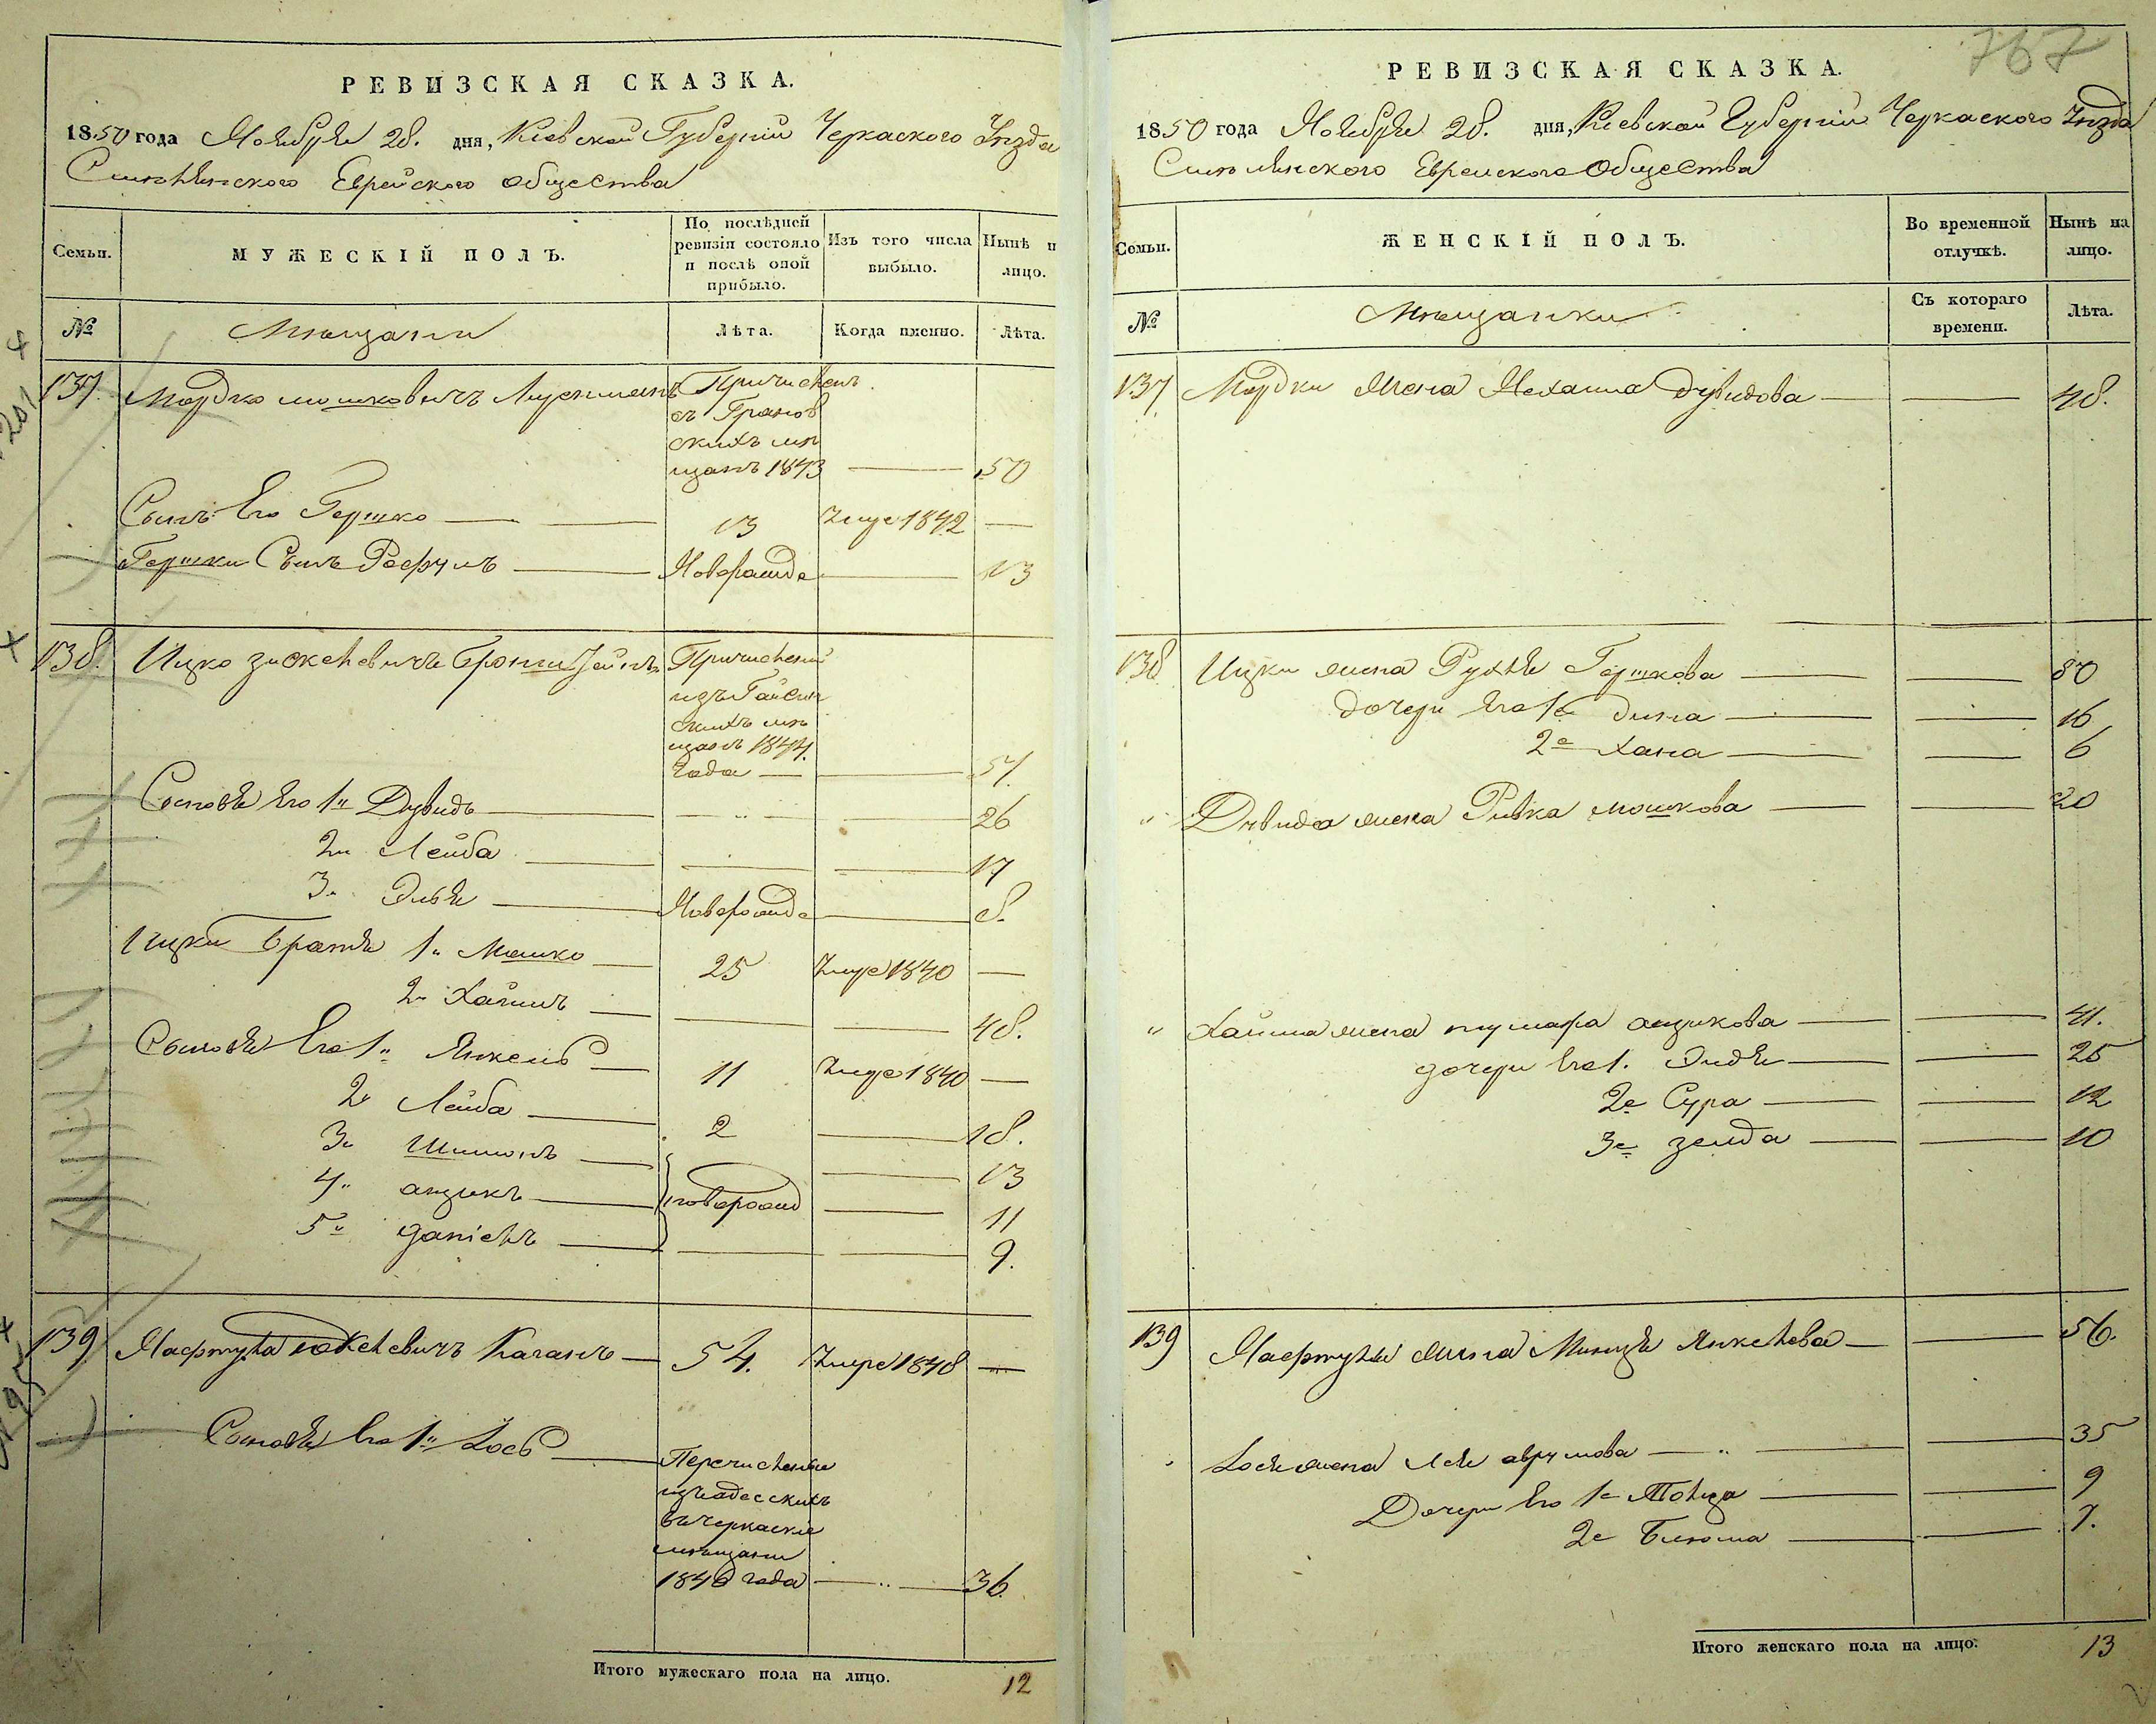 РЕВИЗСКАЯ СКАЗКА.
1850 года Ноября 28. дня, Кіевской Губерніи Черкаского Уѣзда
Смѣлянского Еврейского общества
Семьи.
МУЖЕСКІЙ ПОЛЪ.
По послѣдней ревизіи состояло и послѣ оной прибыло.
Изъ того числа выбыло.
Нынѣ н лицо.
№
Мѣщани
Лѣта.
Когда именно.
Лѣта.
137. Мордко мошковичъ Причисленъ
съ Гранов
скихъ мѣ
щанъ 1843 50
Сынъ Его Гершко 13 Умре 1842
Гершки Сынъ Рефулъ Новорожде 13
138. Ицко зискелевичъ Бронштейнъ Причисленъ
изъ Гайсин
скихъ мѣ
щанъ 1844.
Года 51.
Сыновя Его 1й Дувидъ 26
2й Лейба 17
3й Эля Новорожде 8.
Ицки братя 1й Мошко 25 Умре 1840
2й Хаимъ 48.
Сыновя Его 1й Янкель 11 Умре 1840
2й Лейба 2 18.
3й Шимонъ 13
4й ацикъ новорожд 11
5й даніелъ 9.
139. Нафтула Каганъ 54. Умре 1848
Сыновя Его 1й Іось Перечислены
изъ адесскихъ
въ черкаскіе
мѣщани
1846 года 36.
Итого мужескаго пола на лицо. 12
767
РЕВИЗСКАЯ СКАЗКА.
1850 года Ноября 28. дня, Кіевской Губерніи Черкаского Уѣзда
Смѣлянского Еврейского Общества
Семьи.
ЖЕНСКІЙ ПОЛЪ.
Во временной отлучкѣ.
Нынѣ на лицо.
№
Мѣщанки
Съ котораго времени.
Лѣта.
137 Мордки жена Нехама Дувидова 48.
138 Ицки жена Рухля Гершкова 50
дочери Его 1я Дина 16
2я Хана 6
" Дувида жена Ривка мошкова 20
" Хаима жена ацикова 41.
дочери Его 1. Эидя 25
2я Сура 12
3я зелда 10
139 Нафтулы жена Минця Янкелева 56.
Іося жена Лея аврумова 35
Дочери Его 1я Толца 9
2я Блюма 7.
Итого женскаго пола на лицо. 13